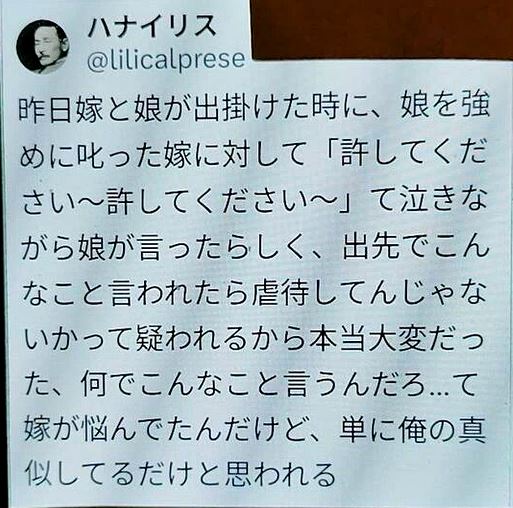 ハナイリス
@lilicalprese
昨日嫁と娘が出掛けた時に、娘を強
めに叱った嫁に対して「許してくだ
さい〜許してください〜」て泣きな
がら娘が言ったらしく、出先でこん
なこと言われたら虐待してんじゃな
いかって疑われるから本当大変だっ
た、何でこんなこと言うんだろ…て
嫁が悩んでたんだけど、単に俺の真
似してるだけと思われる